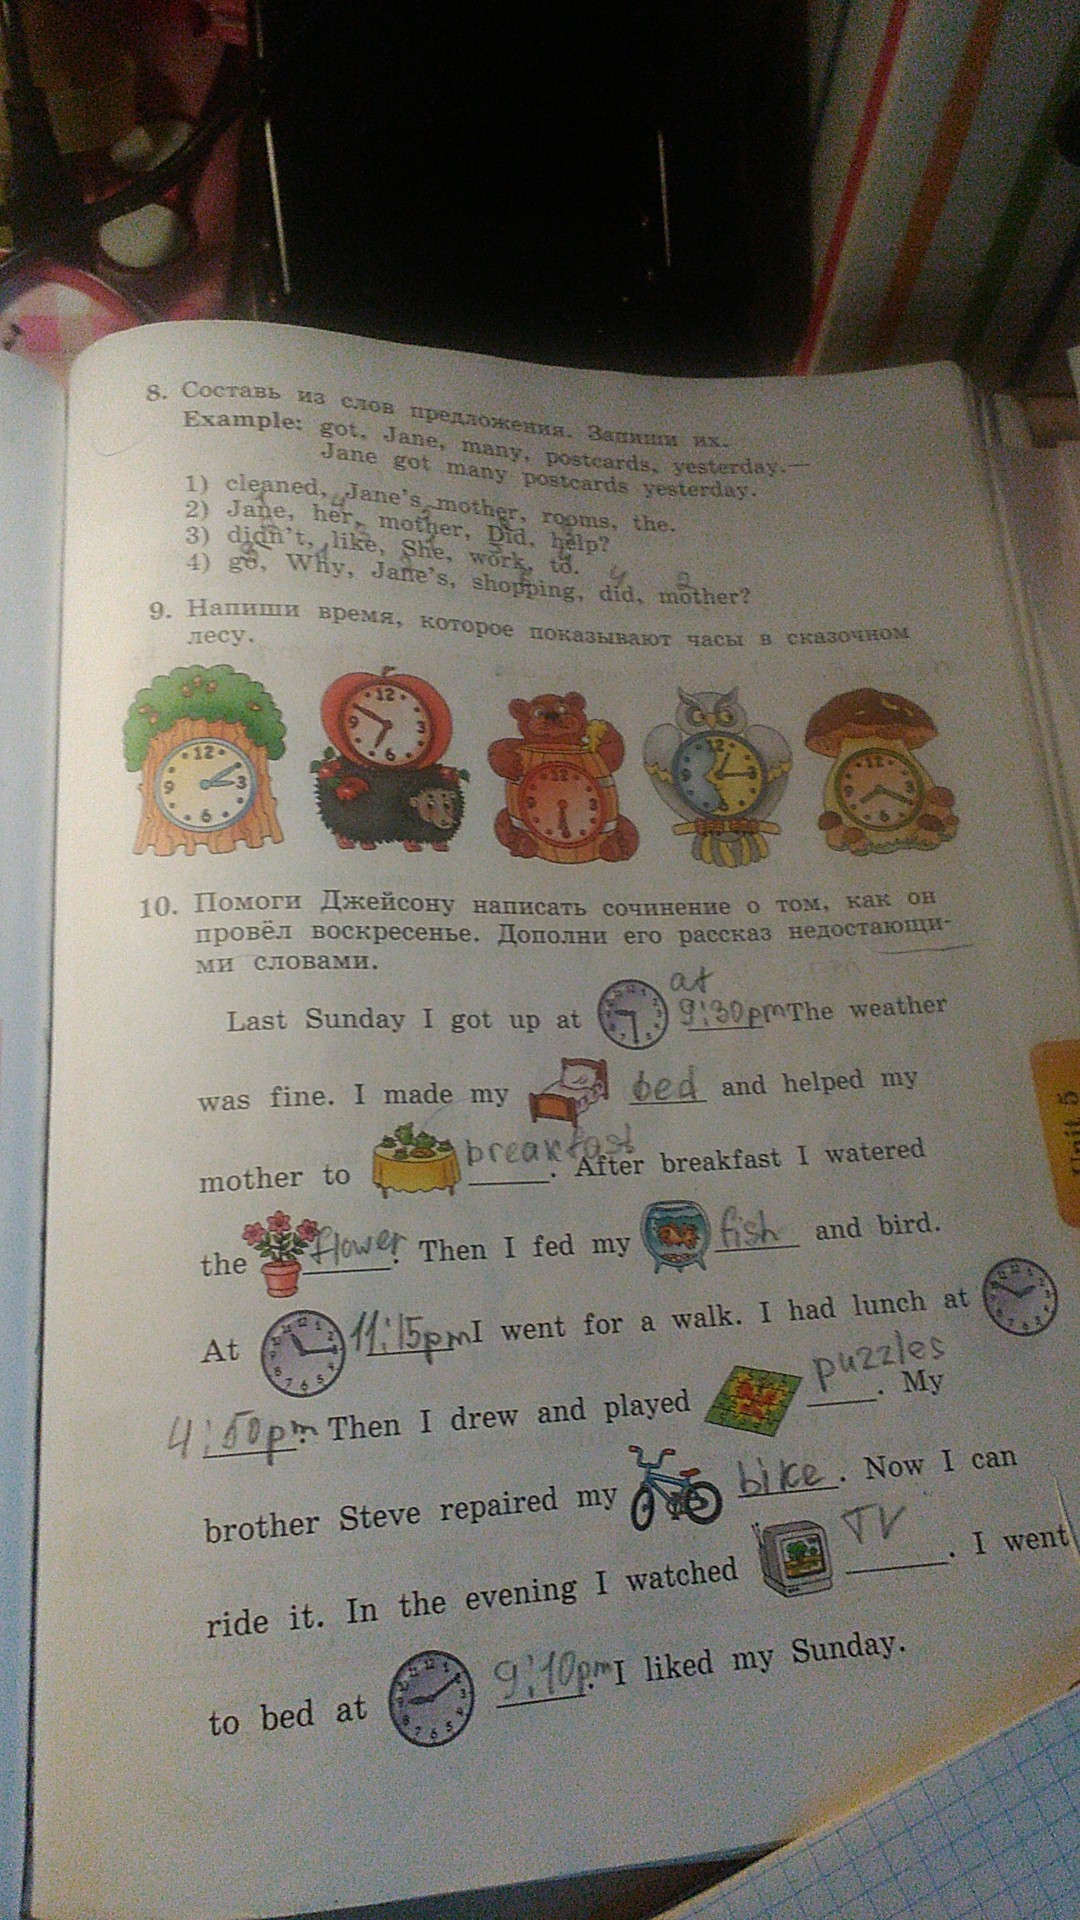 8. Составь из слов предложения. Запиши их.
Example: got, Jane, many, postcards, yesterday.—
Jane got many postcards yesterday.
1) cleaned, Jane's, mother, rooms, the.
2) Jane, her, mother, Did, help?
3) didn't, like, She, work, to.
4) go, Why, Jane's, shopping, did, mother?
9. Напиши время, которое показывают часы в сказочном
лесу.
10. Помоги Джейсону написать сочинение о том, как он
провёл воскресенье. Дополни его рассказ недостающи-
ми словами.
at
Last Sunday I got up at 9:30pm The weather
was fine. I made my bed and helped my
mother to breakfast. After breakfast I watered
the flower. Then I fed my fish and bird.
At 11:15pm I went for a walk. I had lunch at
4:50pm. Then I drew and played puzzles. My
brother Steve repaired my bike. Now I can
ride it. In the evening I watched TV. I went
to bed at 9:10pm. I liked my Sunday.
Unit 5